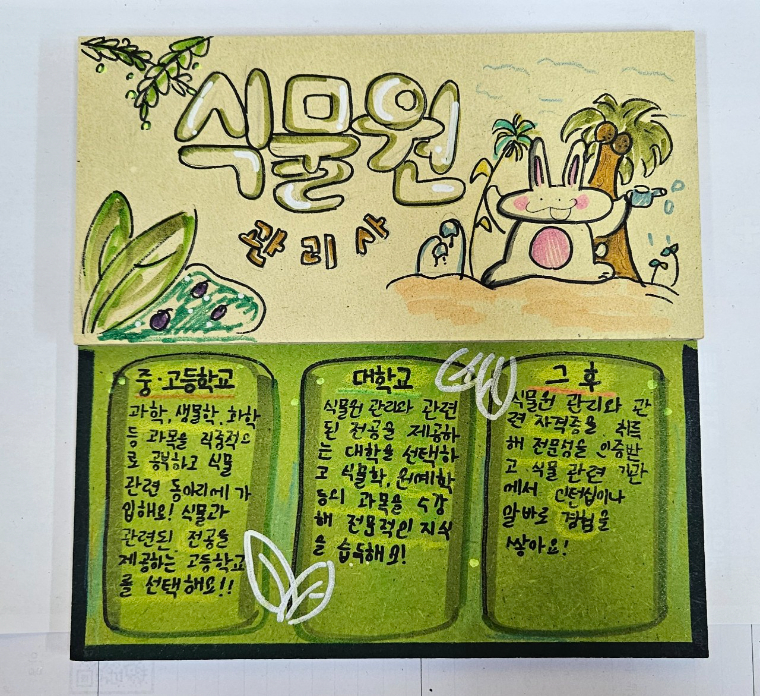 식물원
관리사
중·고등학교
과학, 생물학, 화학
등 과목을 집중적으
로 공부하고 식물
관련 동아리에 가
입해요! 식물과
관련된 전공을
제공하는 고등학교
를 선택해요!!
대학교
식물원 관리와 관련
된 전공을 제공하
는 대학을 선택하
고 식물학, 원예학
등의 과목을 수강
해 전문적인 지식
을 습득해요!
그 후
식물원 관리와 관
련 자격증을 취득
해 전문성을 인증받
고 식물 관련 기관
에서 인턴십이나
알바로 경험을
쌓아요!